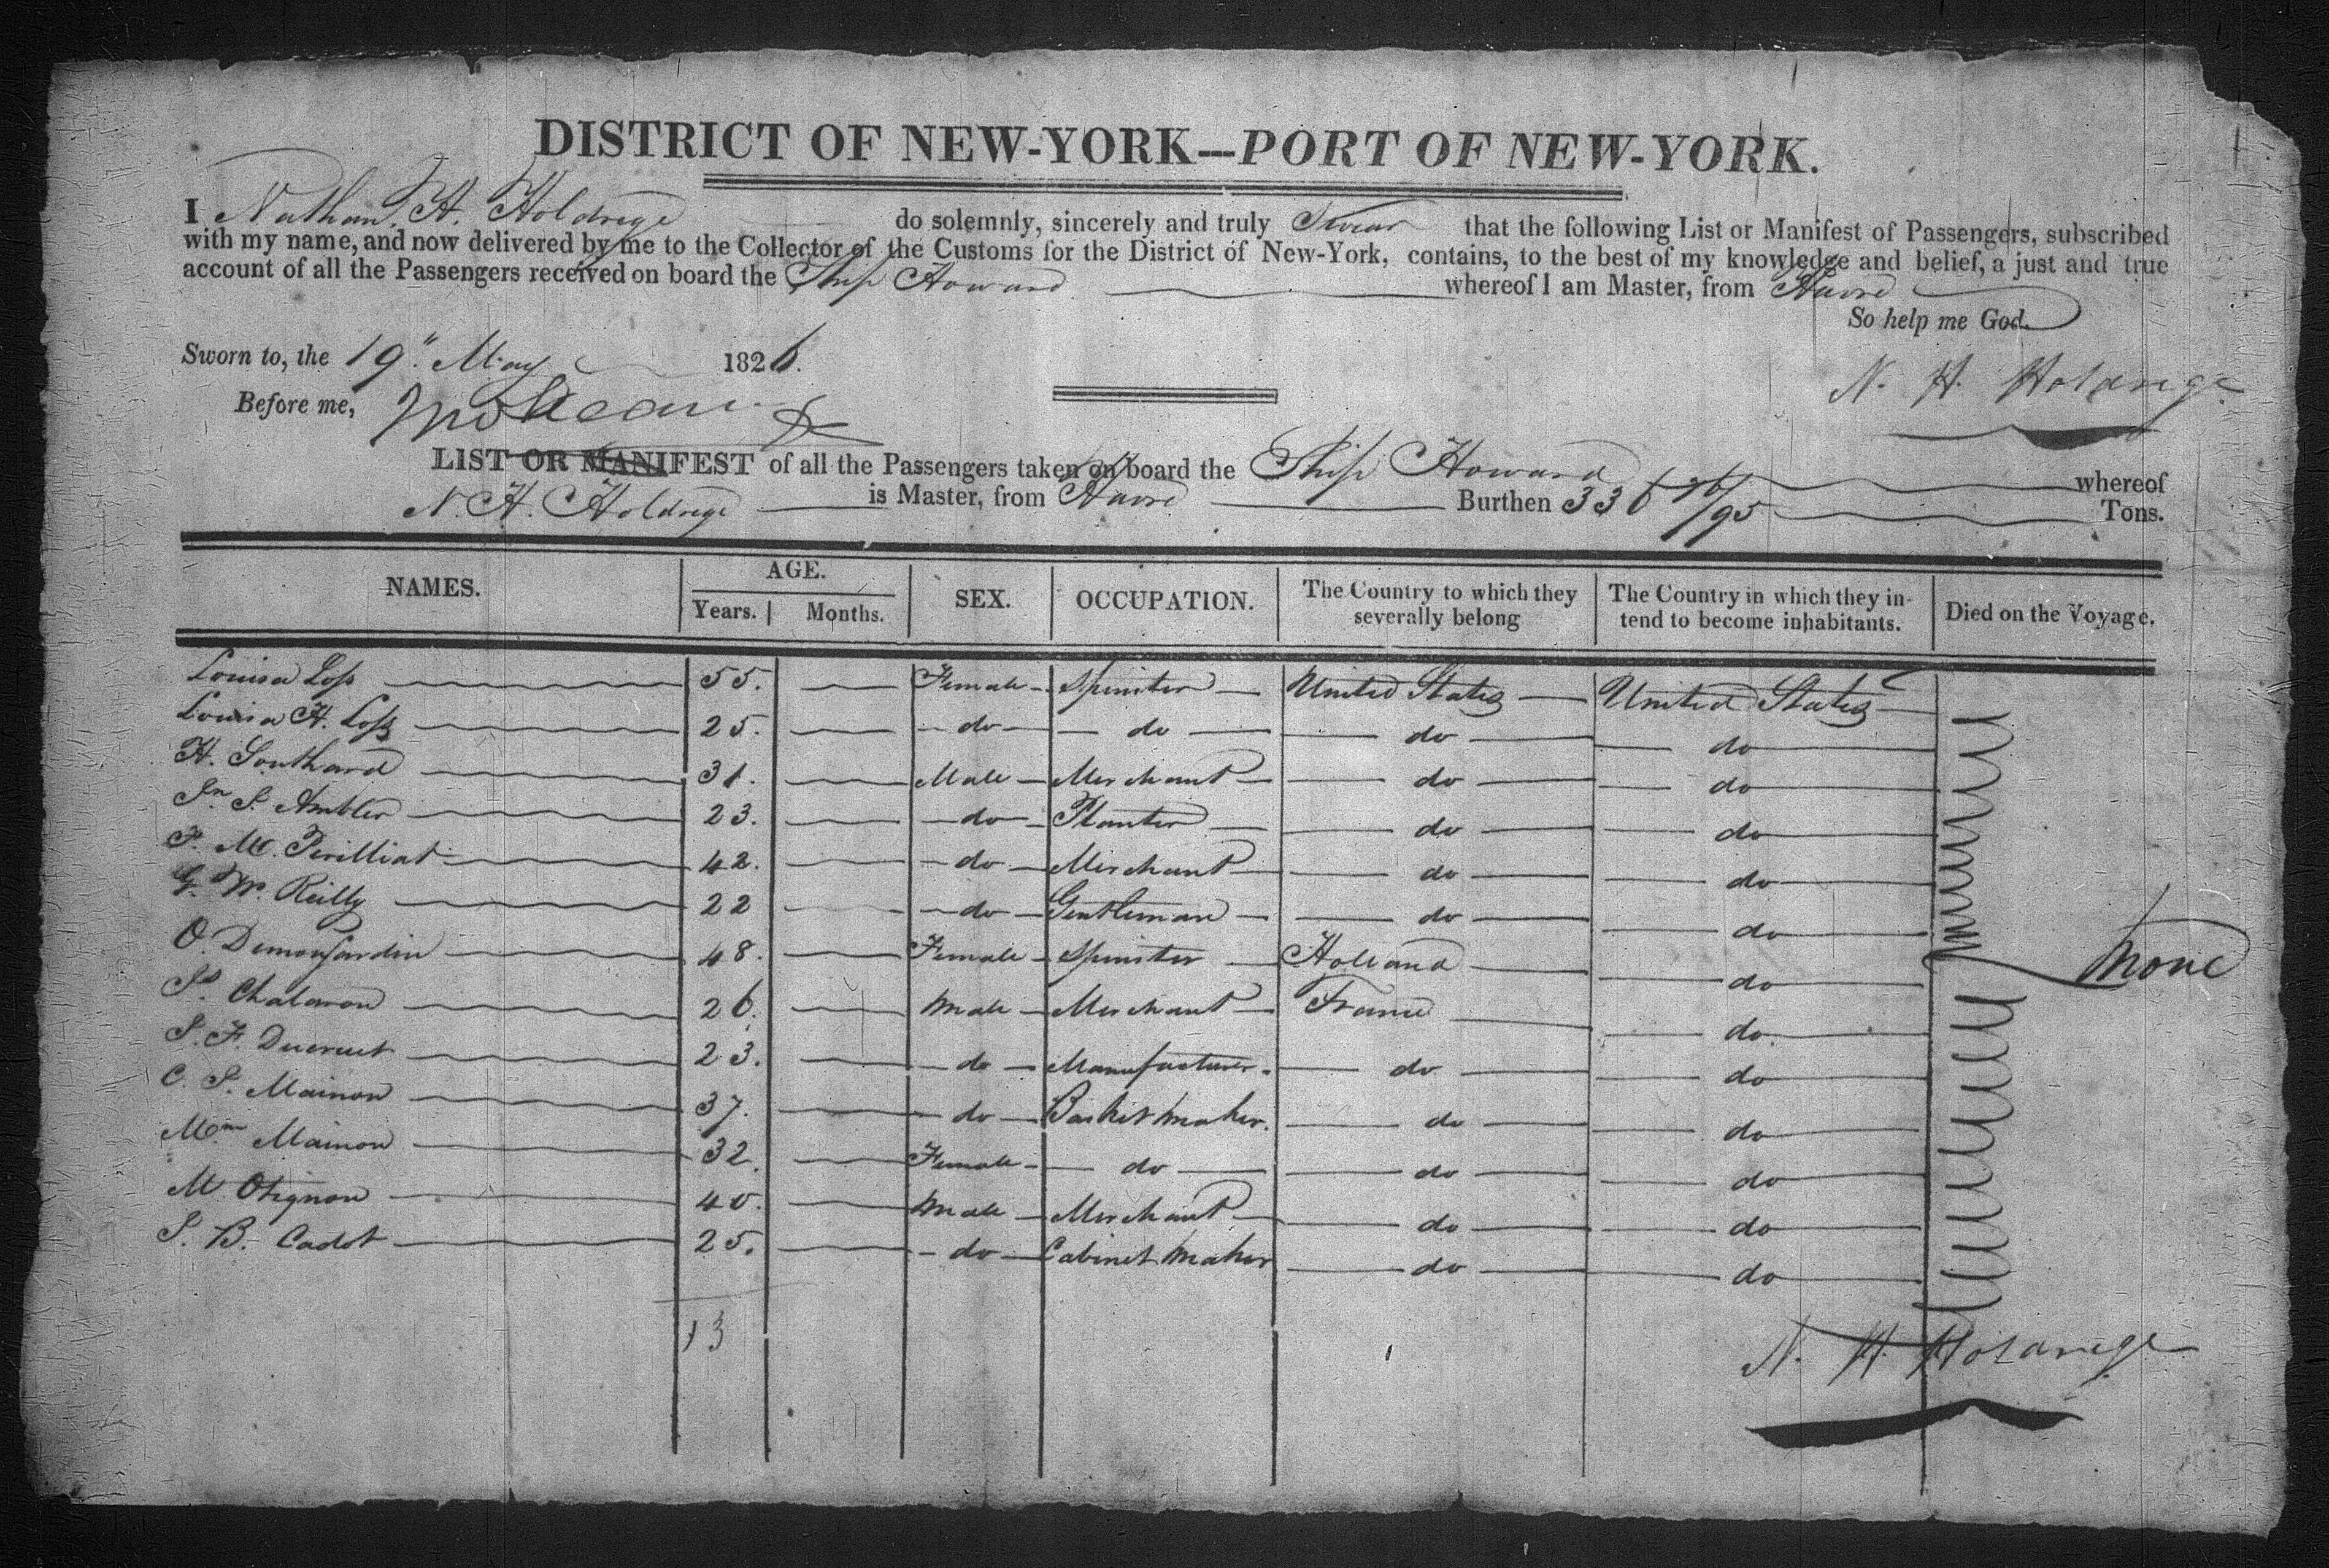 DISTRICT OF NEW-YORK---PORT OF NEW-YORK.
I Nathan H. Holdrege do solemnly, sincerely and truly Swear that the following List or Manifest of Passengers, subscribed
with my name, and now delivered by me to the Collector of the Customs for the District of New-York, contains, to the best of my knowledge and belief, a just and true
account of all the Passengers received on board the Ship Howard whereof I am Master, from Havre
So help me God.
Sworn to, the 19" May 1826.
N. H. Holdrege
Before me,
LIST OR MANIFEST of all the Passengers taken on board the Ship Howard whereof
N. H. Holdrege is Master, from Havre Burthen 336 76/95 Tons.
NAMES. AGE. SEX. OCCUPATION. The Country to which they severally belong The Country in which they in-tend to become inhabitants. Died on the Voyage.
Years. Months.
Louisa Loss 55. Female Spinster United States United States
Louisa H. Loss 25. do do do do
H. Southard 31. Male Merchant do do
Jn S. Ambler 23. do Planter do do
F. M. Perilliat 42. do Merchant do do
G. W. Reilly 22 do Gentleman do do
O. Demonjardin 48. Female Spinster Holland do
Chalaron 26. Male Merchant France do.
S. F. Ducruet 23. do Manufacturer. do do
C. S. Mainon 37. do Basket maker. do do
Mme Mainon 32. Female do do do
M Otignon 40. Male Merchant do do
S. B. Cadot 25. do Cabinet maker do do
none
13
N. H. Holdrege